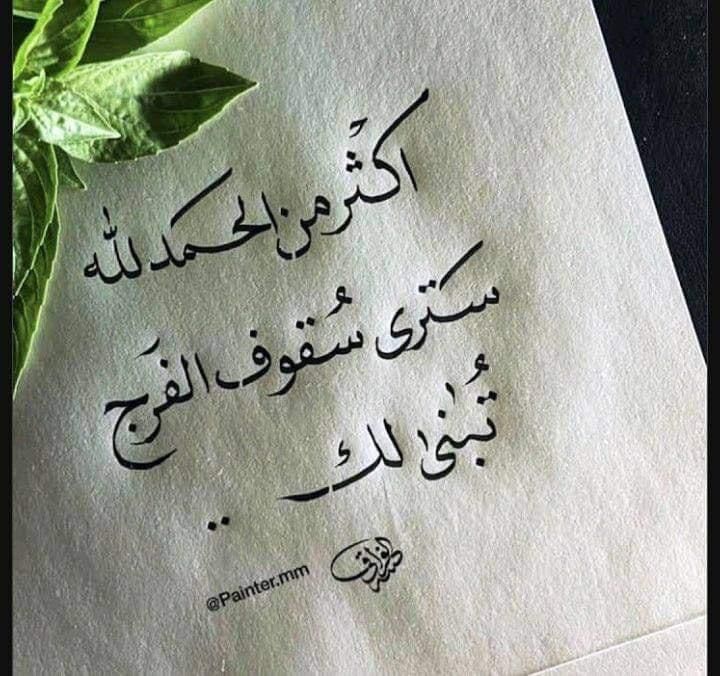 اكثَر من الحمد لله
ستَرى سُقوف الفَرج
تُبْنىٰ لك ..
@Painter.mm